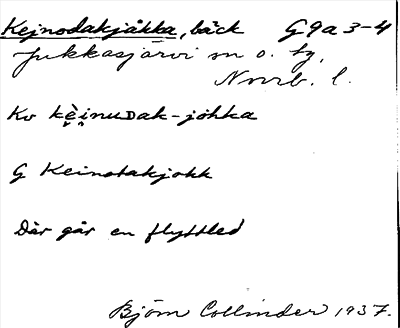 Kejnodakjåkka, bäck G9a3-4
Jukkasjärvi sn o. tg,
Norrb. l.
Kv kèi̯nuDak-jåhka
G Keinotakjokk
Där går en flyttled
Björn Collinder 1937.